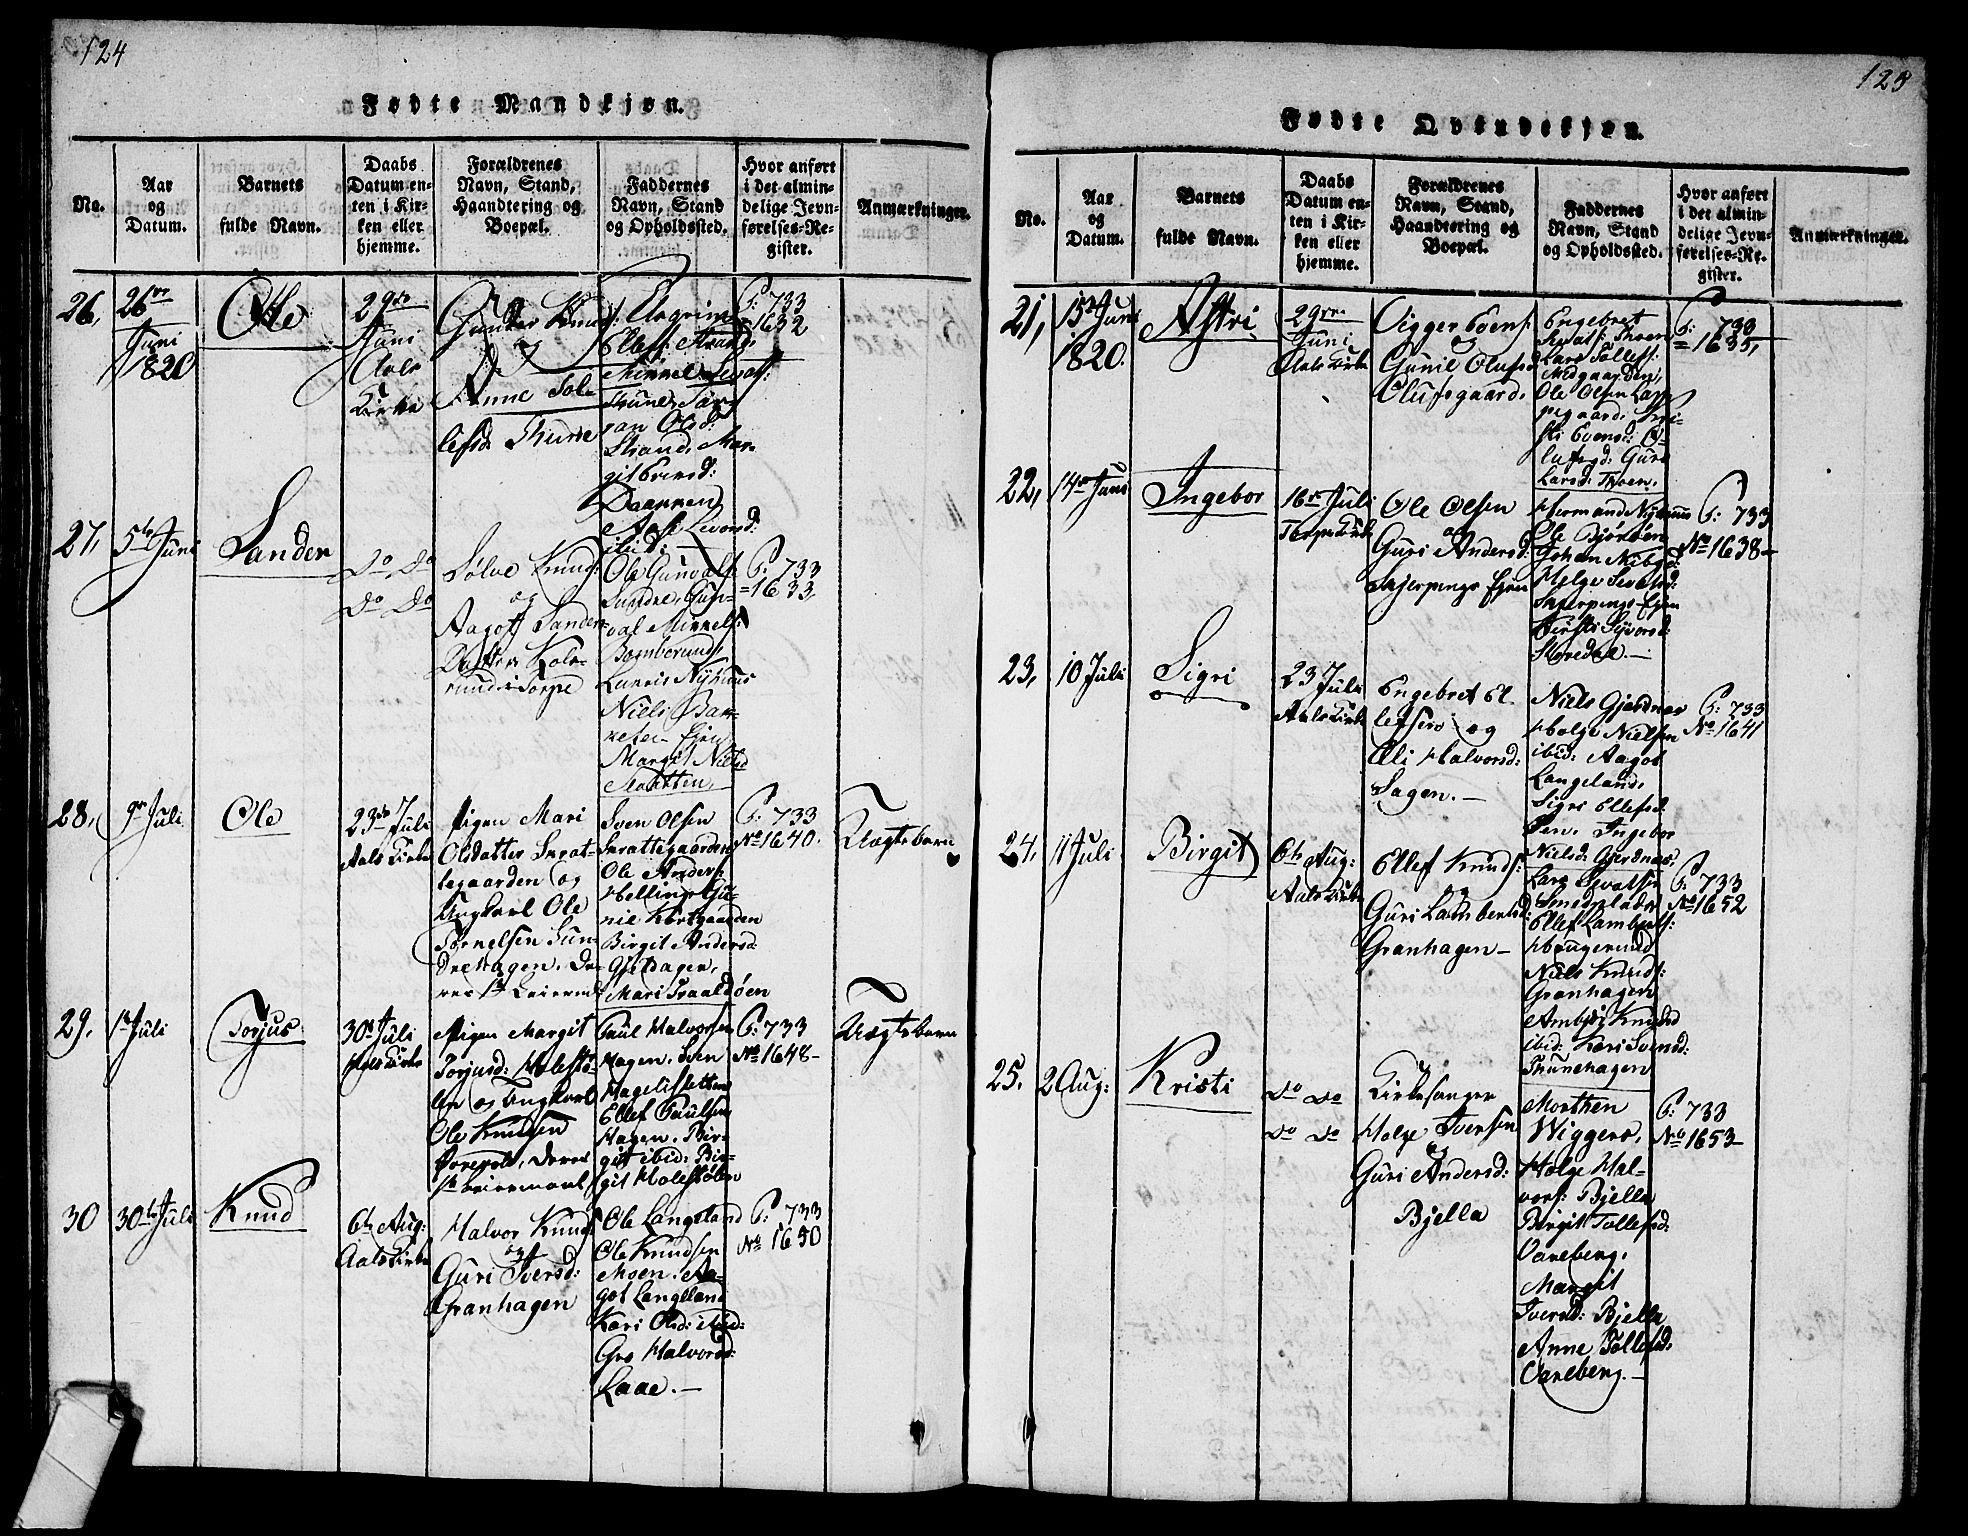 124
Fødte Mandkjøn.
No.
Aar
og
Datum.
Barnets
fulde Navn.
Daabs
Datum en-
ten i Kir-
ken eller
hjemme.
Forældrenes
Navn, Stand,
Haandtering og
Boepæl.
Faddernes
Navn, Stand
og Opholdssted.
Hvor anført
i det almin-
delige Jevn-
førelses-Re-
gister.
Anmærkninger.
26,
26de
Juni
1820
Ole
29de
Juni
Aals
Kirke
Gunder Knuds:
og
Anne Tol-
lefsd Thune
Elsgrim
Ellefs: Strand,
Mikkel Sevats:
Thune,
Olsd:
Strand, Mar-
git Evensd:
P: 733
= 1632
27,
5te Juni
Sander
Do Do
Do Do
Sølve Knuds:
og
Aagot Sanders-
Datter Kols-
rud i Torpe
Ole Gunvalfs
Sundre, Gun-
val Mikkels:
Lauris Nyhuus
Niels Bak-
Margit Nielsd
P: 733
=1633,
28,
9de Juli
Ole
23de Juli
Aals Kirke
Pigen Mari
Olsdatter Snat-
tegaarden og
Ungkarl Ole
Tornelsen Sun-
drehagen. De-
res 1te Leierm:
Sven Olsen
Snattegaarden
Ole Anders:
Helling, Gu-
nil Kortgaarden
Birgit Andersd
Mari Traaldøen
P: 733
No 1640.
Uægtebarn
29.
1te Juli
Torjus
30te Juli
Aals Kirke
Pigen Margit
Torjusd: Holestø-
len og Ungkarl
Ole Knudsen
deres
1te Leiermaal
Paul Halvorsen
Hagen. Sven
Hagelisetten
Ellef Paulsen
Hagen. Bir-
git ibid: Bir-
git Holestølen
P: 733
No 1648-
Uægtebarn
30
30te Juli
Knud
6te Aug:
Aals Kirke
Halvor Knuds:
og
Guri Iversd:
Granhagen
Ole Langeland
Ole Knudsen
Moen. Aa-
got Langeland
Kari Olsd: ibid:
Gro Halvorsd:
Laae. —
P: 733
No 1650
125
Fødte Qvindekjøn.
No.
Aar
og
Datum.
Barnets
fulde Navn.
Daabs
Datum en-
ten i Kir-
ken eller
hjemme.
Forældrenes
Navn, Stand,
Haandtering og
Boepæl.
Faddernes
Navn, Stand
og Opholdssted.
Hvor anført
i det almin-
delige Jevn-
førelses-Re-
gister.
Anmærkninger.
21,
15de Juni
1820.
Astri
29de
Juni
Aals Kirke
Vigger Evens:
og
Gunil Olufsd
Olufsgaard.
Engebret
Sivats: Thoen
Lars Tollefs:
Nedgaarden,
Ole Olsen Lap-
pegaard. Kri-
sti Evensd: O-
lufsgd: Guri
Larsd: Thoen.
P: 733
=1635,
22,
14de Juni
Ingebor
16de Juli
Torpe Kirke
Ole Olsen
og
Guri Andersd:
Skjerpings Ejen
Hermand Nyhuus
Ole Bjørøen
Johan Nibgd:
Helge Sevatsd:
Skjerpings-Ejen
Kirsti Syversd:
P: 733
No 1638-
23,
10 Juli
Sigri
23 Juli
Aals Kirke
Engebret El-
lefsen og
Eli Halvorsd:
Sagen. —
Niels Gjerdnes
Holge Nielsen
ibid: Aagot
Langeland,
Sigri Ellefsd
Øen. Ingebor
Nielsd: Gjerdnes.
P: 733
No 1641
24,
11 Juli
Birgit
6te Aug:
Aals Kirke
Ellef Knuds:
og
Guri Lambertsd:
Granhagen —
Lars Sevatsen
Smedsladen
Ellef Lamberts:
Haugerud
Niels Knuds:
Granhagen
Ambjør Knudsd
ibid: Kari Svensd:
Thunehagen
P: 733
No 1652
25.
2 Aug:
Kristi
Do Do
Do Do
Kirkesanger
Holge Iversen
og
Guri Andersd:
Bjella
Morthen
Wiggers,
Holge Hal-
vors: Bjella
Birgit Tollefsd:
Vareberg.
Margit
Iversd: Bjella
Anne Tollefsd.
Vareberg. —
P: 733
No 1653-